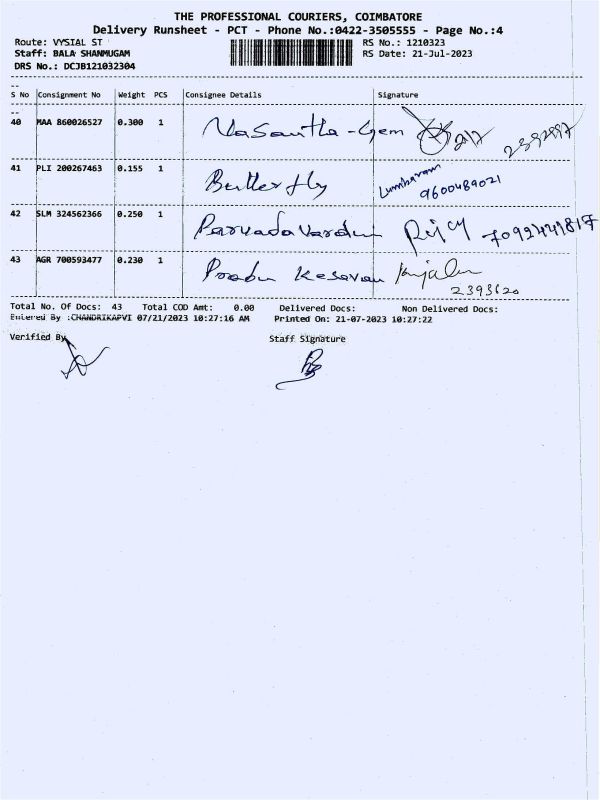 THE PROFESSIONAL COURIERS, COIMBATORE
Delivery Runsheet - PCT - Phone No.:0422-3505555 - Page No.:4
Route: VYSIAL ST RS No.: 1210323
Staff: BALA SHANMUGAM RS Date: 21-Jul-2023
DRS No.: DCJB121032304
S No Consignment No Weight PCS Consignee Details Signature
40 MAA 860026527 0.300 1 Vasantha - Gem
41 PLI 200267463 0.155 1 Butterfly 9600489021
42 SLM 324562366 0.250 1
43 AGR 700593477 0.230 1 Prabu Kesavan
2393620
Total No. Of Docs: 43 Total COD Amt: 0.00 Delivered Docs: Non Delivered Docs:
Entered By :CHANDRIKAPVI 07/21/2023 10:27:16 AM Printed On: 21-07-2023 10:27:22
Verified By Staff Signature